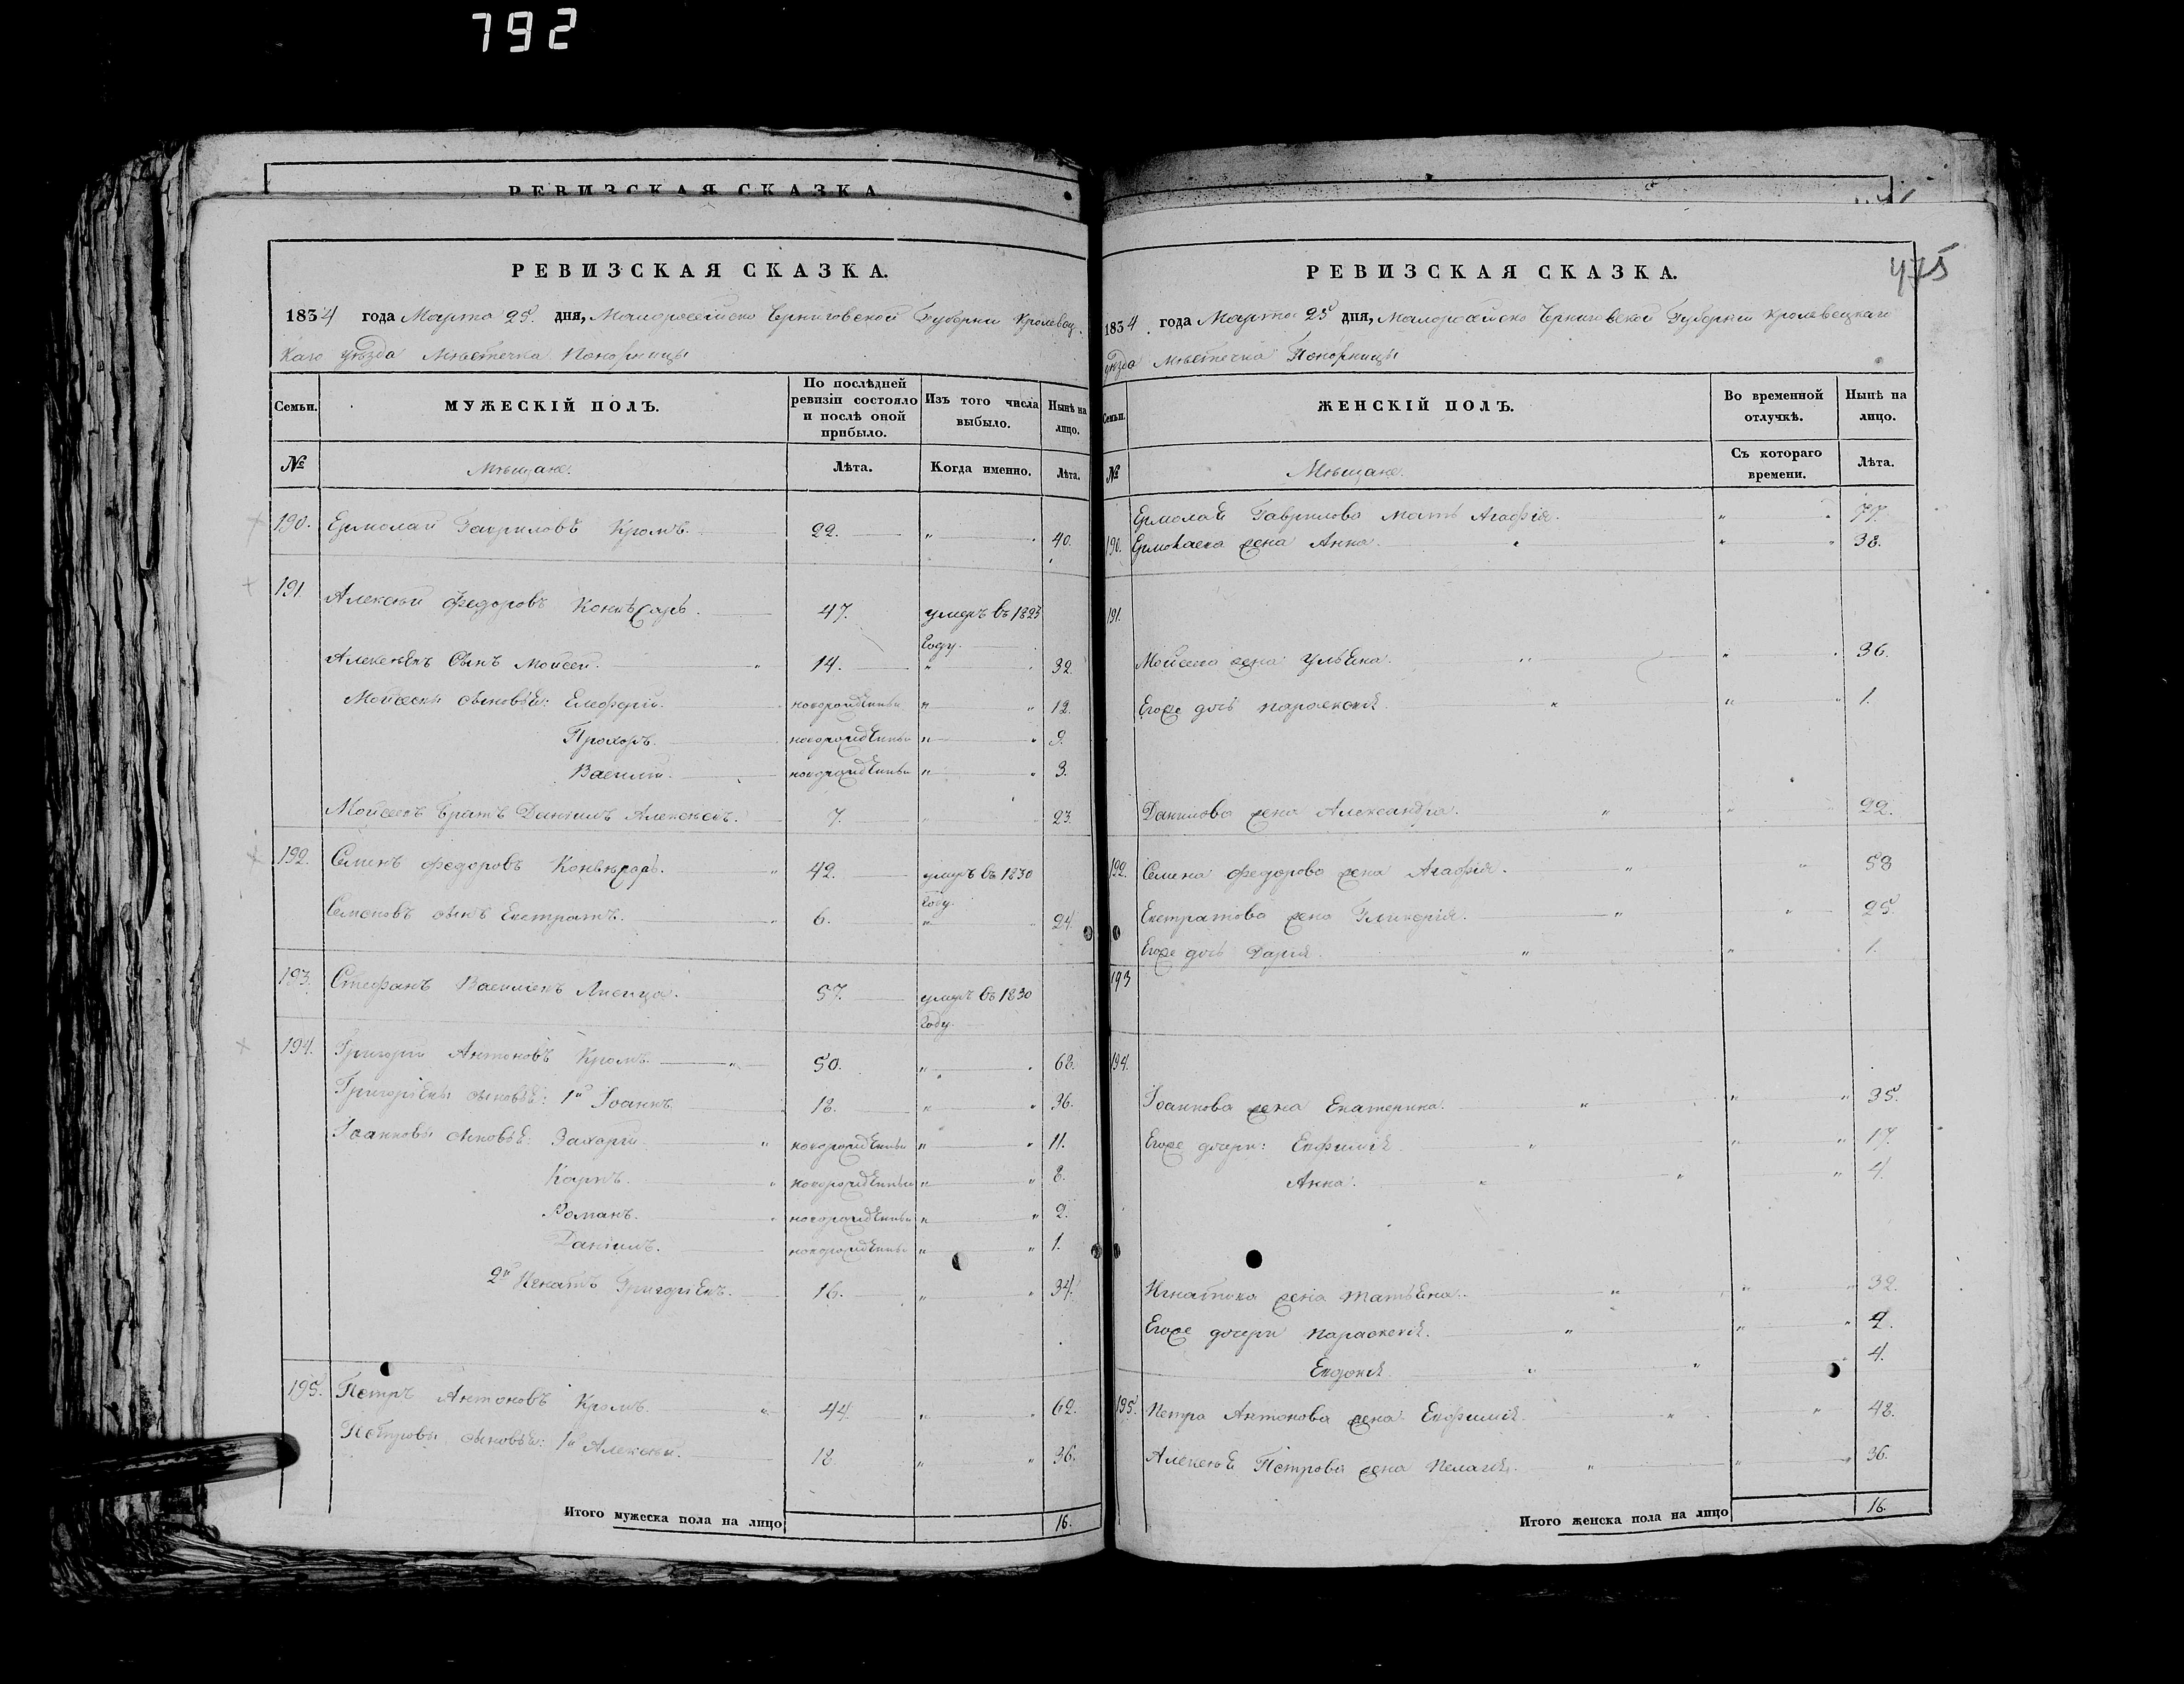 792
РЕВИЗСКАЯ СКАЗКА
РЕВИЗСКАЯ СКАЗКА.
1834 года Марта 25. дня, Малоросейско Черниговской Губернии Кролевец
каго уѣзда Мѣстечка Понорницы
Семьи. МУЖЕСКІЙ ПОЛЪ. По послѣдней ревизіи состояло и послѣ оной прибыло. Изъ того числа выбыло. Нынѣ на лицо.
№ Мѣщане. Лѣта. Когда именно. Лѣта.
190. Ермолай Гавриловъ Кромъ. 22. " 40.
191 Алексѣй Федоровъ 47. умеръ въ 1823
году.
Алексѣевъ сынъ Мойсей. 14. " 32.
Мойсеевы сыновья: Елеферій. новорожденный " 12.
Прохоръ. новорожденный " 9.
Василій. новорожденный " 3.
Мойсеевъ братъ Даніилъ Алексѣевъ. 7. " 23.
192. Семенъ Федоровъ 42. умеръ въ 1830
году.
Семеновъ сынъ Евстратъ. 6. " 24.
193. Стефанъ Василіевъ Лисица. 57. умеръ въ 1830
году.
194. Григорій Антоновъ Кромъ. 50. " 68.
Григоріевы сыновья: 1й Іоаннъ. 18. " 36.
Іоанновы сыновья: Захарій. новорожденный " 11.
Карпъ. новорожденный " 8.
Романъ. новорожденный " 2.
Даніилъ. новорожденный " 1.
2й Игнатъ Григоріевъ. 16. " 34.
195. Петръ Антоновъ Кромъ. 44. " 62.
Петровы сыновья: 1й Алексѣй. 18. " 36.
Итого мужеска пола на лицо 16.
475
РЕВИЗСКАЯ СКАЗКА.
1834. года Марта 25 дня, Малоросейско Черниговской Губерніи Кролевецкаго
уѣзда Мѣстечка Понорницы
Семьи. ЖЕНСКІЙ ПОЛЪ. Во временной отлучкѣ. Нынѣ на лицо.
№ Мѣщане. Съ котораго времени. Лѣта.
Ермолая Гаврилова мать Агафія. " 77.
190. Ермолаева жена Анна. " 38.
191.
Мойсеева жена Ульяна. " 36.
Егоже дочь Параскевія. " 1.
Данилова жена Александра. " 22.
192. Семена Федорова жена Агафія. " 58
Евстратова жена Гликерія. " 25.
Егоже дочь Дарія. " 1.
193
194.
Іоаннова жена Екатерина. " 35.
Егоже дочери: Евфимія. " 17.
Анна. " 4.
Игнатова жена Татьяна. " 32.
Егоже дочери Параскевія. "
Евдокія " 4.
195. Петра Антонова жена Евфимія. " 48.
Алексѣя Петрова жена Пелагія. " 36.
Итого женска пола на лицо 16.